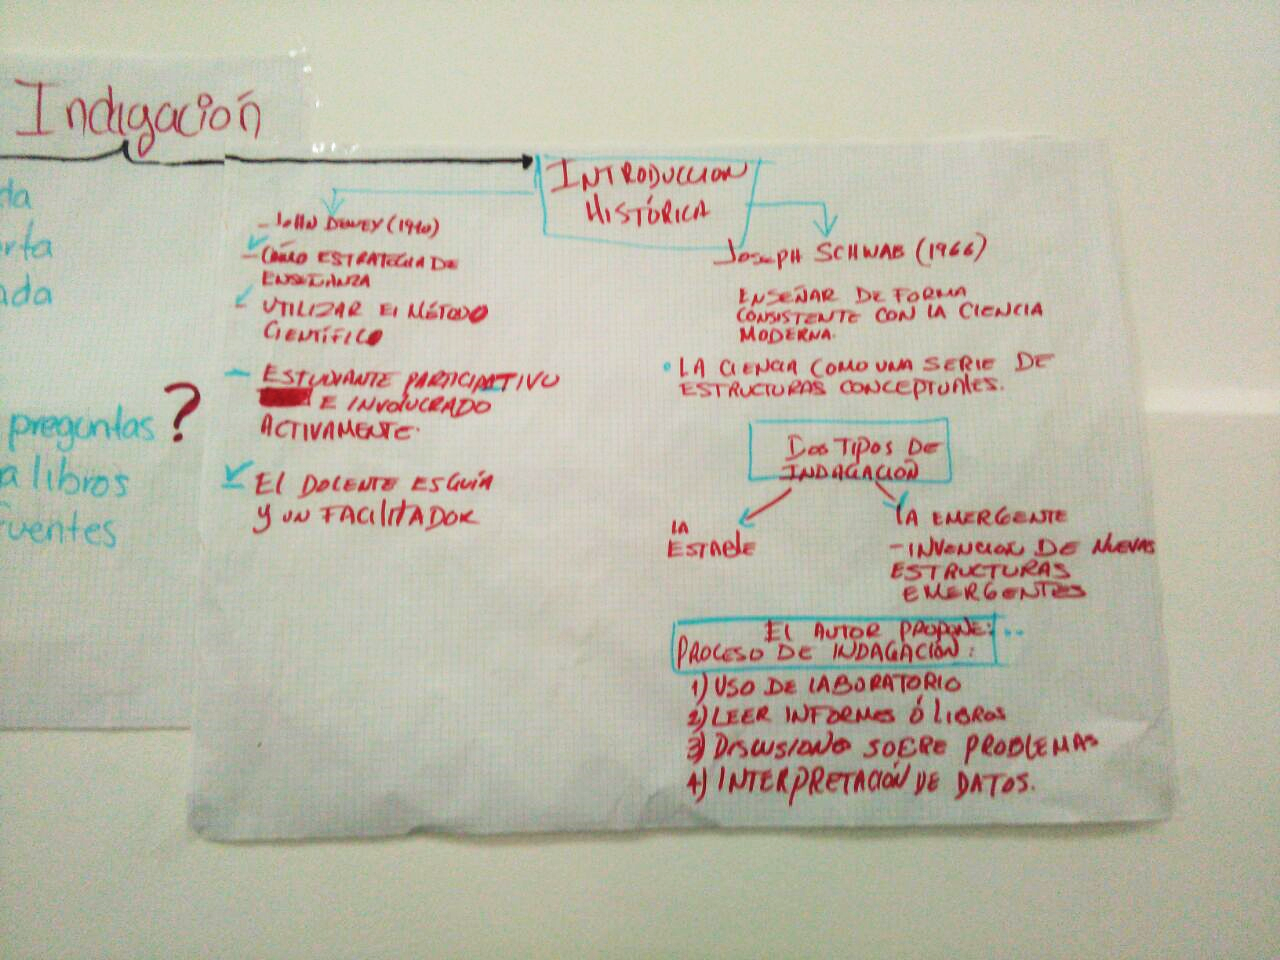 Indagación
da
rta
ada
preguntas ?
a libros
fuentes
INTRODUCCION
HISTÓRICA
- JOHN DEWEY (1910)
- COMO ESTRATEGIA DE
ENSEÑANZA
- UTILIZAR El MÉTODO
CIENTÍFICO
- ESTUDIANTE PARTICIPATIVO
E INVOLUCRADO
ACTIVAMENTE.
- El DOCENTE ES GUÍA
Y UN FACILITADOR
JOSEPH SCHWAB (1966)
ENSEÑAR DE FORMA
CONSISTENTE CON LA CIENCIA
MODERNA.
• LA CIENCIA COMO UNA SERIE DE
ESTRUCTURAS CONCEPTUALES.
DOS TIPOS DE
INDAGACIÓN
LA
ESTABlE
LA EMERGENTE
- INVENCION DE NUEVAS
ESTRUCTURAS
EMERGENTES
El AUTOR PROPONE: ..
PROCESO DE INDAGACIÓN :
1) USO DE LABORATORIO
2) LEER INFORMES Ó LIBROS
3) DISCUSIONES SOBRE PROBLEMAS
4) INTERPRETACIÓN DE DATOS.